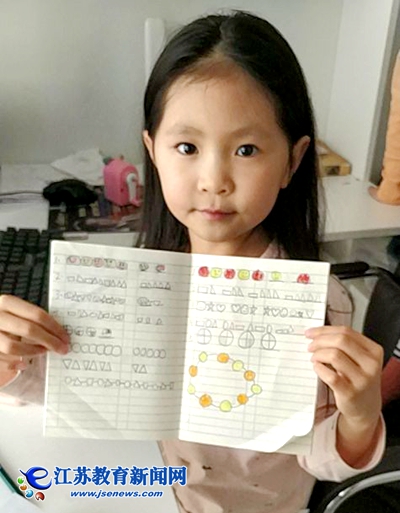 江苏教育新闻网
www.jsenews.com